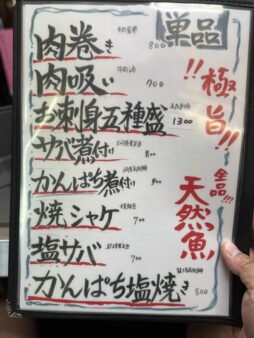 単品
肉巻き 800
肉吸い 700
お刺身五種盛 1300
サバ煮付け 800
かんぱち煮付け 900
焼シャケ 700
塩サバ 700
かんぱち塩焼き 800
!!極旨!!
全品!!!
天然魚